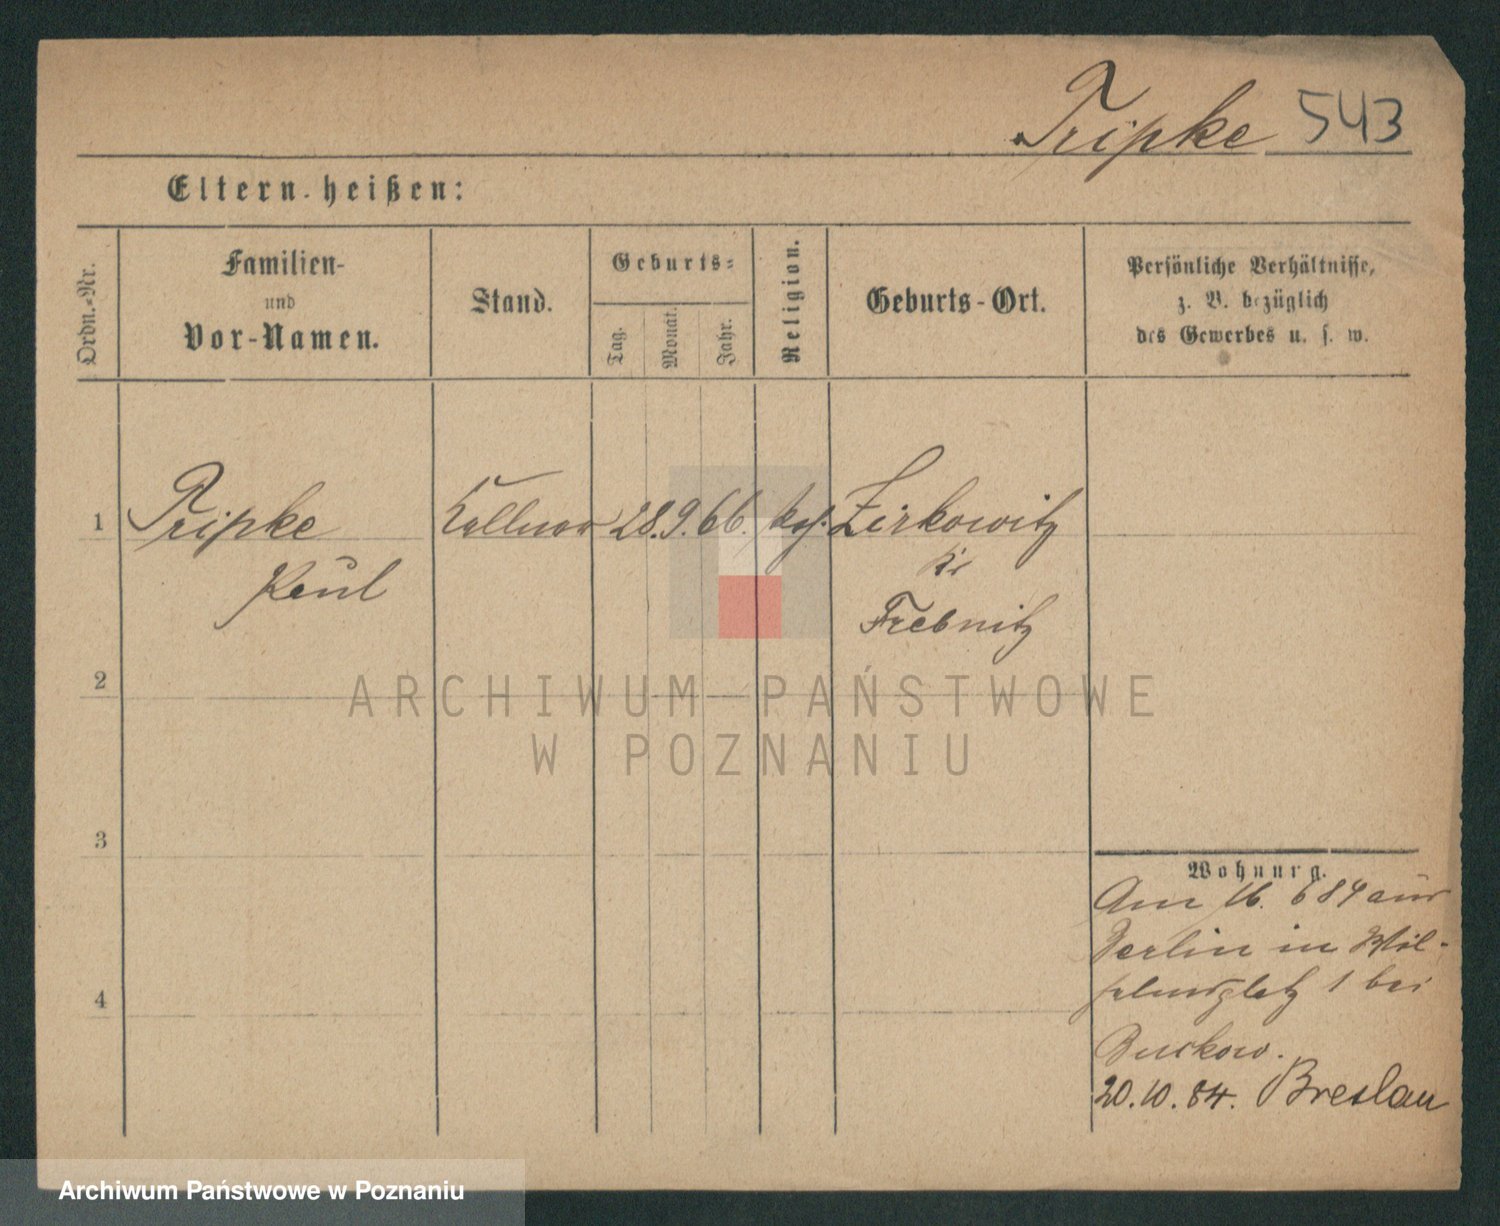 Tripke 543
Eltern heißen:
Ordn.-Nr.
Familien-
und
Vor-Namen.
Stand.
Geburts-
Tag.
Monat.
Jahr.
Religion.
Geburts-Ort.
Persönliche Verhältnisse,
z. B. bezüglich
des Gewerbes u. s. w.
1 Tripke Kellner 28. 9. 66. Zirkowitz
Paul Kr
Trebnitz
2
ARCHIWUM PAŃSTWOWE
W POZNANIU
3
4
Wohnung.
Am 16. 6 84 aus
Berlin in Wil-
helmsplatz 1 bei
Buckow.
20. 10. 84. Breslau
Archiwum Państwowe w Poznaniu